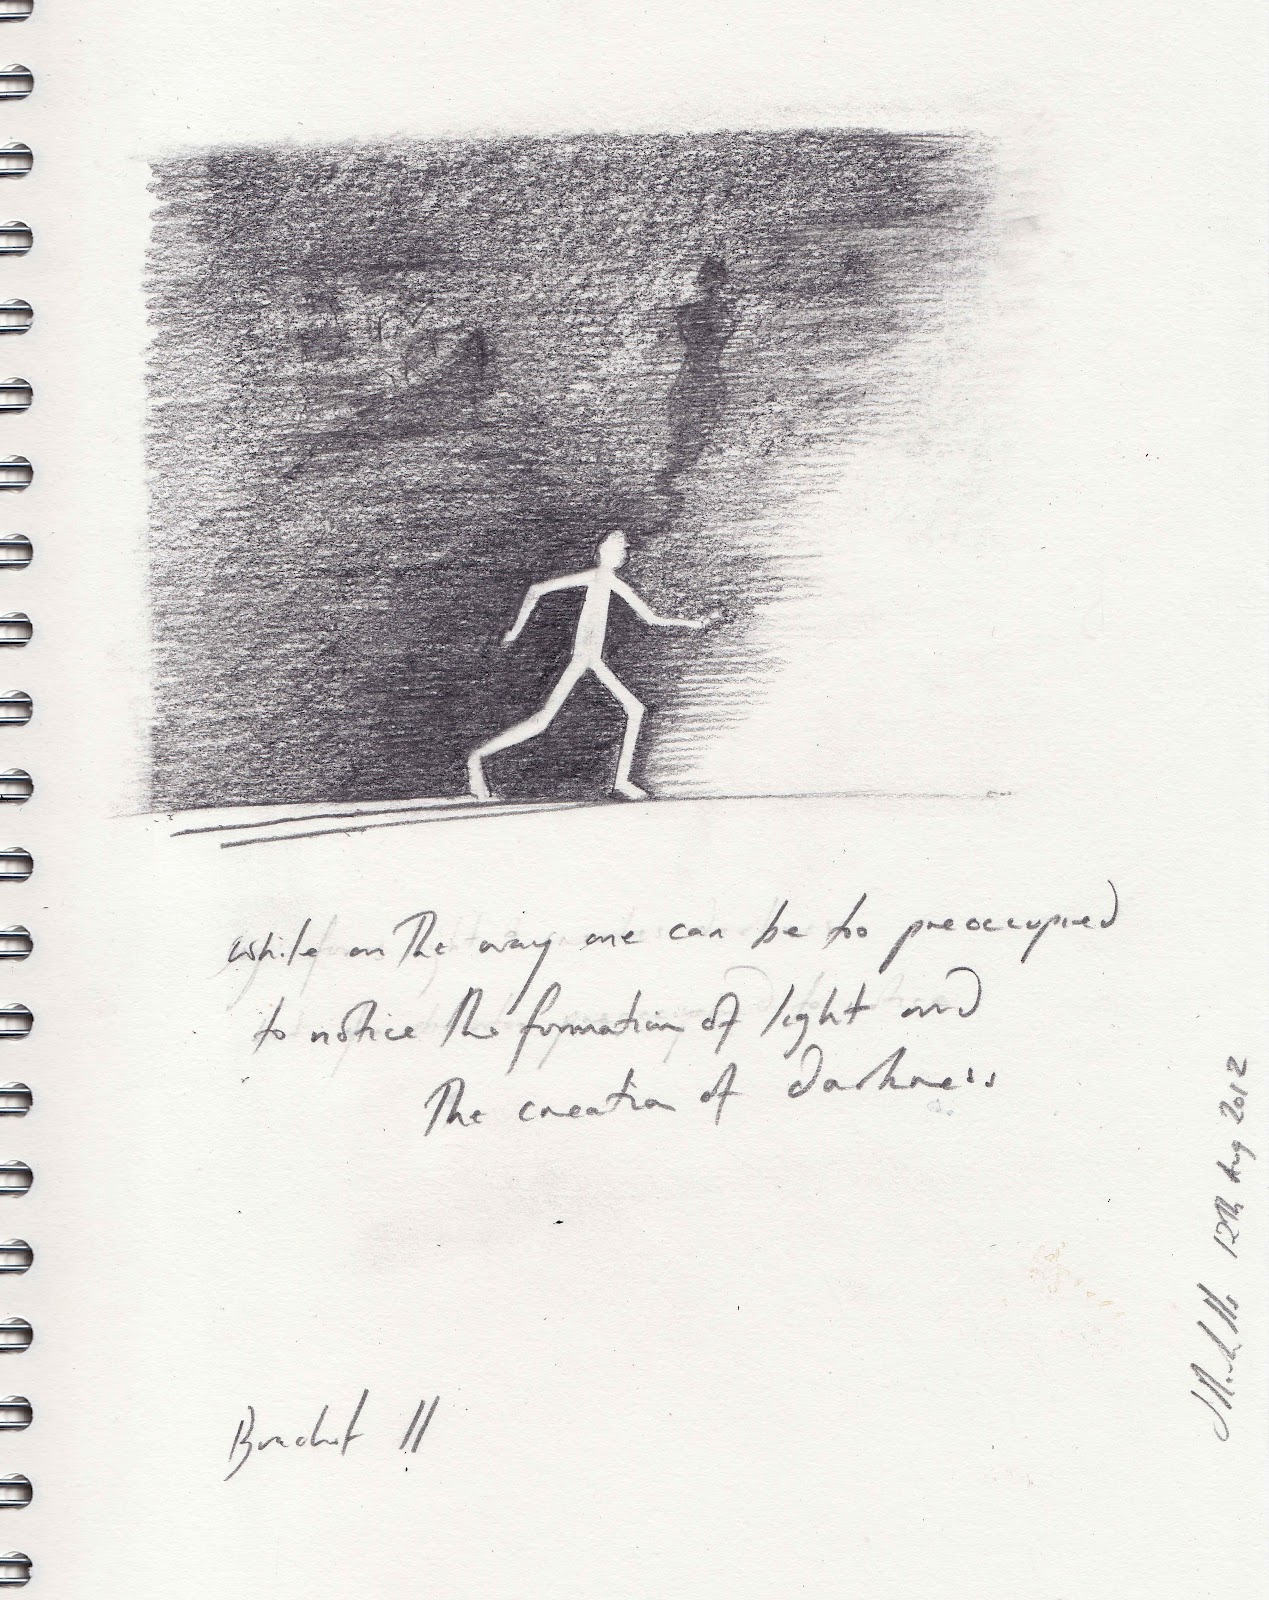 while on the way one can be to preoccupied
to notice the formation of light and
the creation of darkness
12th Aug 2012
Brachot 11